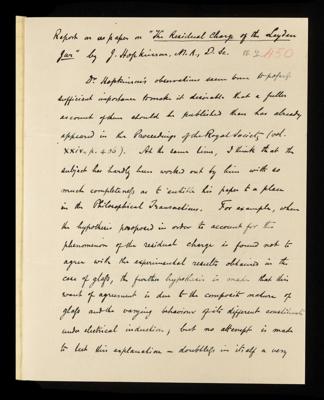 Report on a paper on "The Residual Charge of the Leyden
Jar" by J. Hopkinson, M.A., D.Sc. 450
Dr. Hopkinson's observations seem to me to possess
sufficient importance to make it desirable that a fuller
account of them should be published than has already
appeared in the Proceedings of the Royal Society (vol.
XXIV. p. 408). At the same time, I think that the
subject has hardly been worked out by him with so
much completeness as to entitle his paper to a place
in the Philosophical Transactions. For example, when
the hypothesis proposed in order to account for the
phenomenon of the residual charge is found not to
agree with the experimental results obtained in the
case of glass, the further hypothesis is made that this
want of agreement is due to the composite nature of
glass and the varying behaviour of its different constituents
under electrical induction; but no attempt is made
to test this explanation – doubtless in itself a very